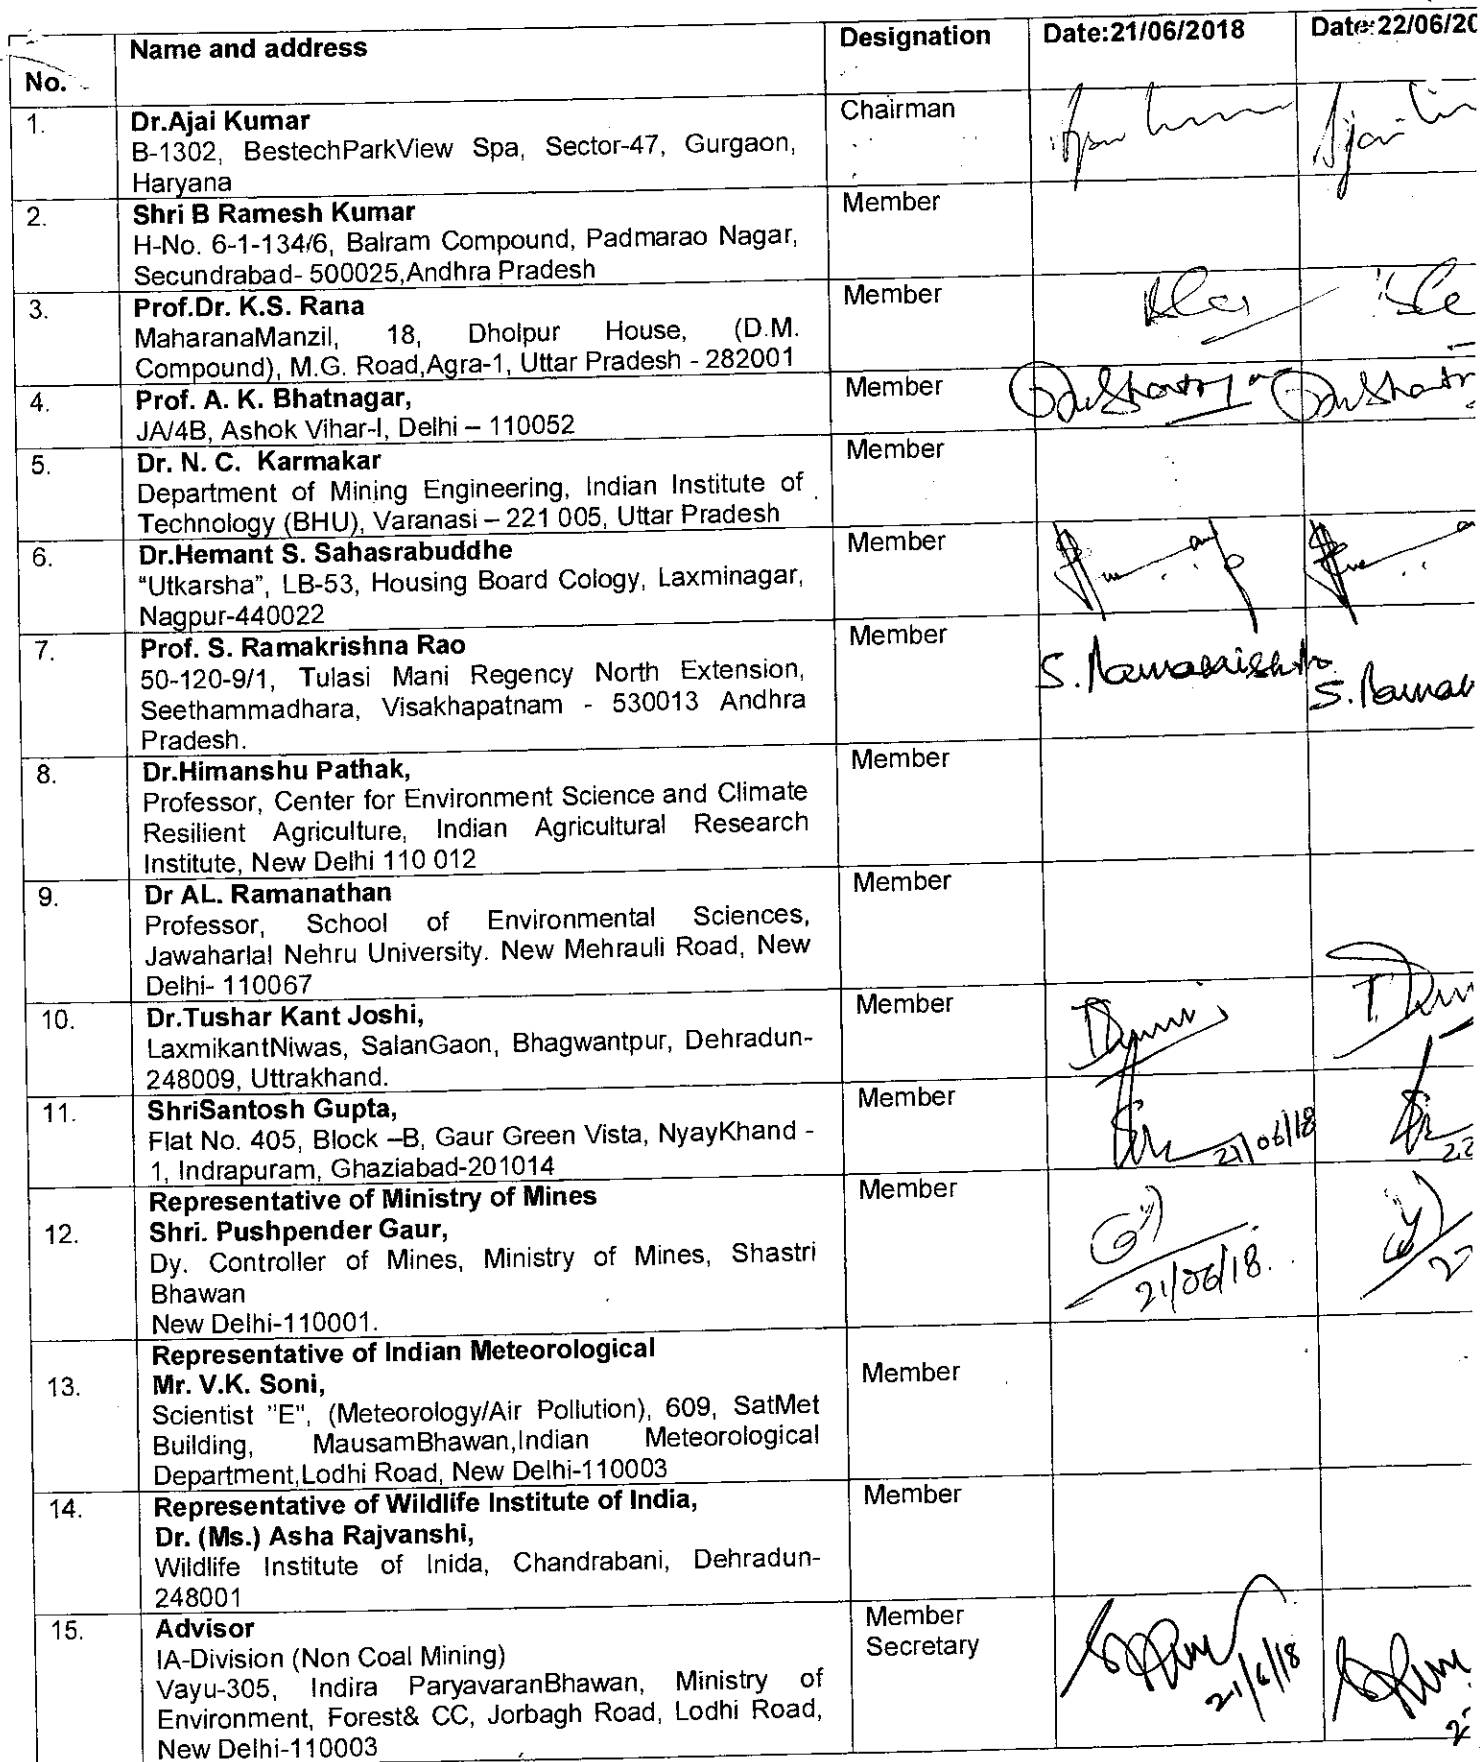 No. Name and address Designation Date:21/06/2018 Date:22/06/20
1. Dr.Ajai Kumar Chairman
B-1302, BestechParkView Spa, Sector-47, Gurgaon,
Haryana
2. Shri B Ramesh Kumar Member
H-No. 6-1-134/6, Balram Compound, Padmarao Nagar,
Secundrabad- 500025,Andhra Pradesh
3. Prof.Dr. K.S. Rana Member
MaharanaManzil, 18, Dholpur House, (D.M.
Compound), M.G. Road,Agra-1, Uttar Pradesh - 282001
4. Prof. A. K. Bhatnagar, Member
JA/4B, Ashok Vihar-I, Delhi – 110052
5. Dr. N. C. Karmakar Member
Department of Mining Engineering, Indian Institute of
Technology (BHU), Varanasi – 221 005, Uttar Pradesh
6. Dr.Hemant S. Sahasrabuddhe Member
"Utkarsha", LB-53, Housing Board Cology, Laxminagar,
Nagpur-440022
7. Prof. S. Ramakrishna Rao Member
50-120-9/1, Tulasi Mani Regency North Extension,
Seethammadhara, Visakhapatnam - 530013 Andhra
Pradesh.
8. Dr.Himanshu Pathak, Member
Professor, Center for Environment Science and Climate
Resilient Agriculture, Indian Agricultural Research
Institute, New Delhi 110 012
9. Dr AL. Ramanathan Member
Professor, School of Environmental Sciences,
Jawaharlal Nehru University. New Mehrauli Road, New
Delhi- 110067
10. Dr.Tushar Kant Joshi, Member
LaxmikantNiwas, SalanGaon, Bhagwantpur, Dehradun-
248009, Uttrakhand.
11. ShriSantosh Gupta, Member
Flat No. 405, Block –B, Gaur Green Vista, NyayKhand -
1, Indrapuram, Ghaziabad-201014
21/06/18 22
Representative of Ministry of Mines Member
12. Shri. Pushpender Gaur,
Dy. Controller of Mines, Ministry of Mines, Shastri
Bhawan
New Delhi-110001.
21/06/18.
Representative of Indian Meteorological
13. Mr. V.K. Soni, Member
Scientist "E", (Meteorology/Air Pollution), 609, SatMet
Building, MausamBhawan,Indian Meteorological
Department,Lodhi Road, New Delhi-110003
14. Representative of Wildlife Institute of India, Member
Dr. (Ms.) Asha Rajvanshi,
Wildlife Institute of Inida, Chandrabani, Dehradun-
248001
15. Advisor Member
Secretary
IA-Division (Non Coal Mining)
Vayu-305, Indira ParyavaranBhawan, Ministry of
Environment, Forest& CC, Jorbagh Road, Lodhi Road,
New Delhi-110003
21/6/18